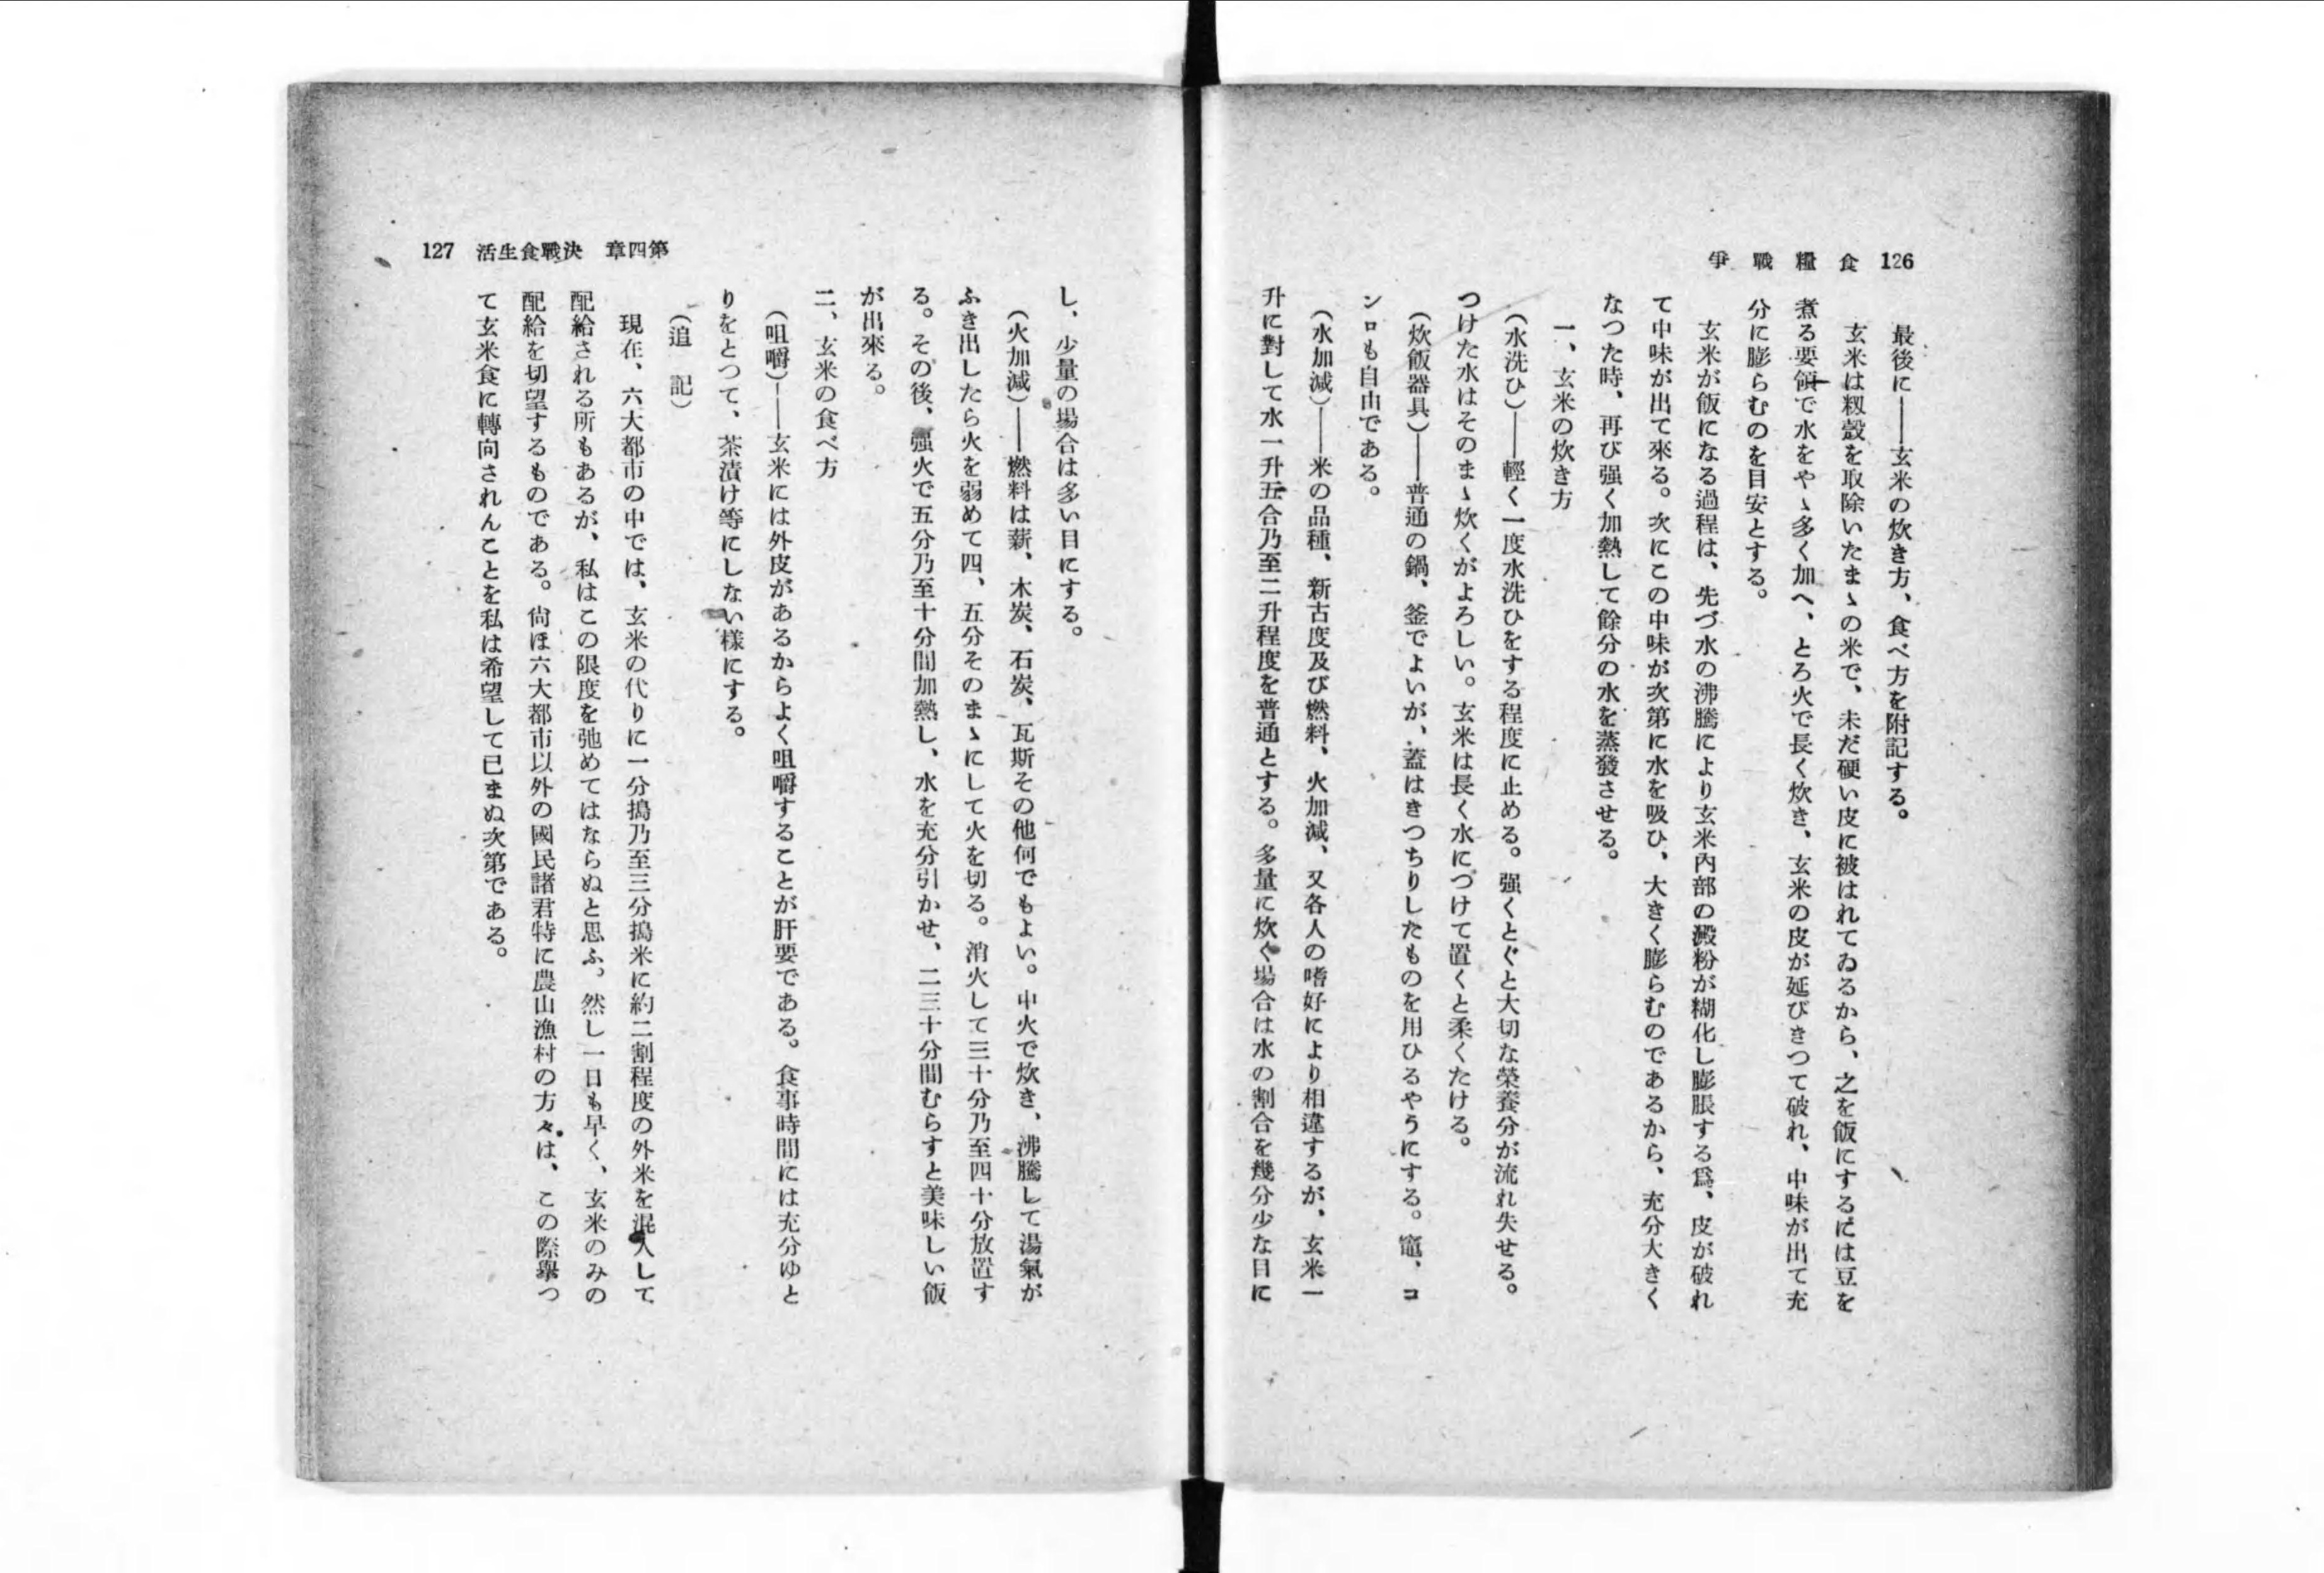 126 食糧戰爭
最後に――玄米の炊き方、食べ方を附記する。
玄米は籾殼を取除いたまゝの米で、未だ硬い皮に被はれてゐるから、之を飯にするには豆を
煮る要領で水をやゝ多く加へ、とろ火で長く炊き、玄米の皮が延びきつて破れ、中味が出て充
分に膨らむのを目安とする。
玄米が飯になる過程は、先づ水の沸騰により玄米內部の澱粉が糊化し膨脹する爲、皮が破れ
て中味が出て來る。次にこの中味が次第に水を吸ひ、大きく膨らむのであるから、充分大きく
なつた時、再び强く加熱して餘分の水を蒸發させる。
一、玄米の炊き方
（水洗ひ）――輕く一度水洗ひをする程度に止める。强くとぐと大切な榮養分が流れ失せる。
つけた水はそのまゝ炊くがよろしい。玄米は長く水につけて置くと柔くたける。
（炊飯器具）――普通の鍋、釜でよいが、蓋はきつちりしたものを用ひるやうにする。竈、コ
ンロも自由である。
（水加減）――米の品種、新古度及び燃料、火加減、又各人の嗜好により相違するが、玄米一
升に對して水一升五合乃至二升程度を普通とする。多量に炊く場合は水の割合を幾分少な目に
第四章 決戰食生活 127
し、少量の場合は多い目にする。
（火加減）――燃料は薪、木炭、石炭、瓦斯その他何でもよい。中火で炊き、沸騰して湯氣が
ふき出したら火を弱めて四、五分そのまゝにして火を切る。消火して三十分乃至四十分放置す
る。その後、强火で五分乃至十分間加熱し、水を充分引かせ、二三十分間むらすと美味しい飯
が出來る。
二、玄米の食べ方
（咀嚼）――玄米には外皮があるからよく咀嚼することが肝要である。食事時間には充分ゆと
りをとつて、茶漬け等にしない樣にする。
（追　記）
現在、六大都市の中では、玄米の代りに一分搗乃至三分搗米に約二割程度の外米を混入して
配給される所もあるが、私はこの限度を弛めてはならぬと思ふ。然し一日も早く、玄米のみの
配給を切望するものである。尙ほ六大都市以外の國民諸君特に農山漁村の方々は、この際擧つ
て玄米食に轉向されんことを私は希望して已まぬ次第である。